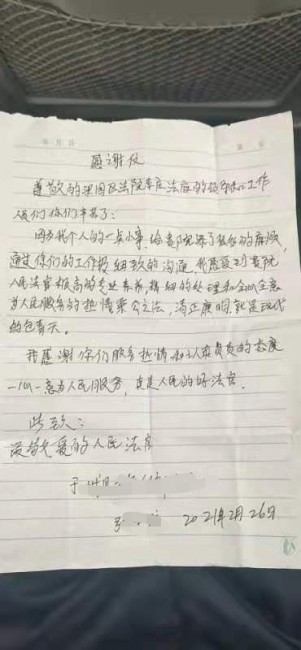 感谢信
尊敬的梁园区法院车庄法庭的领导和工作
人员们你们辛苦了:
因为我个人的一点小事,给贵院添了很多的麻烦,
通过你们的工作 细致的沟通,我感受到贵院
人民法官极高的专业素养,精细的处理和全心全意
为人民服务的热情秉公立法,清正廉明,就是现代
的包青天。
我感谢你们服务热情和认真负责的态度
一心一意为人民服务,真是人民的好法官。
此致:
敬爱的人民法官
2021年2月26日